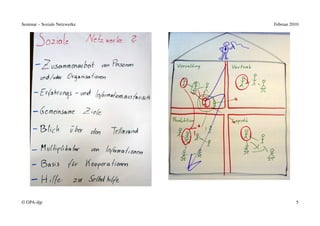 Seminar – Soziale Netzwerke
Februar 2010
Soziale Netzwerke ?
– Zusammenarbeit von Personen
und/oder Organisationen
– Erfahrungs- und Informationsaustausch
– Gemeinsame Ziele
– Blick über den Tellerrand
– Multiplikator von Informationen
– Basis für Kooperationen
– Hilfe zur Selbsthilfe
Verwaltung
Vertrieb
Produktion
© GPA-djp
5